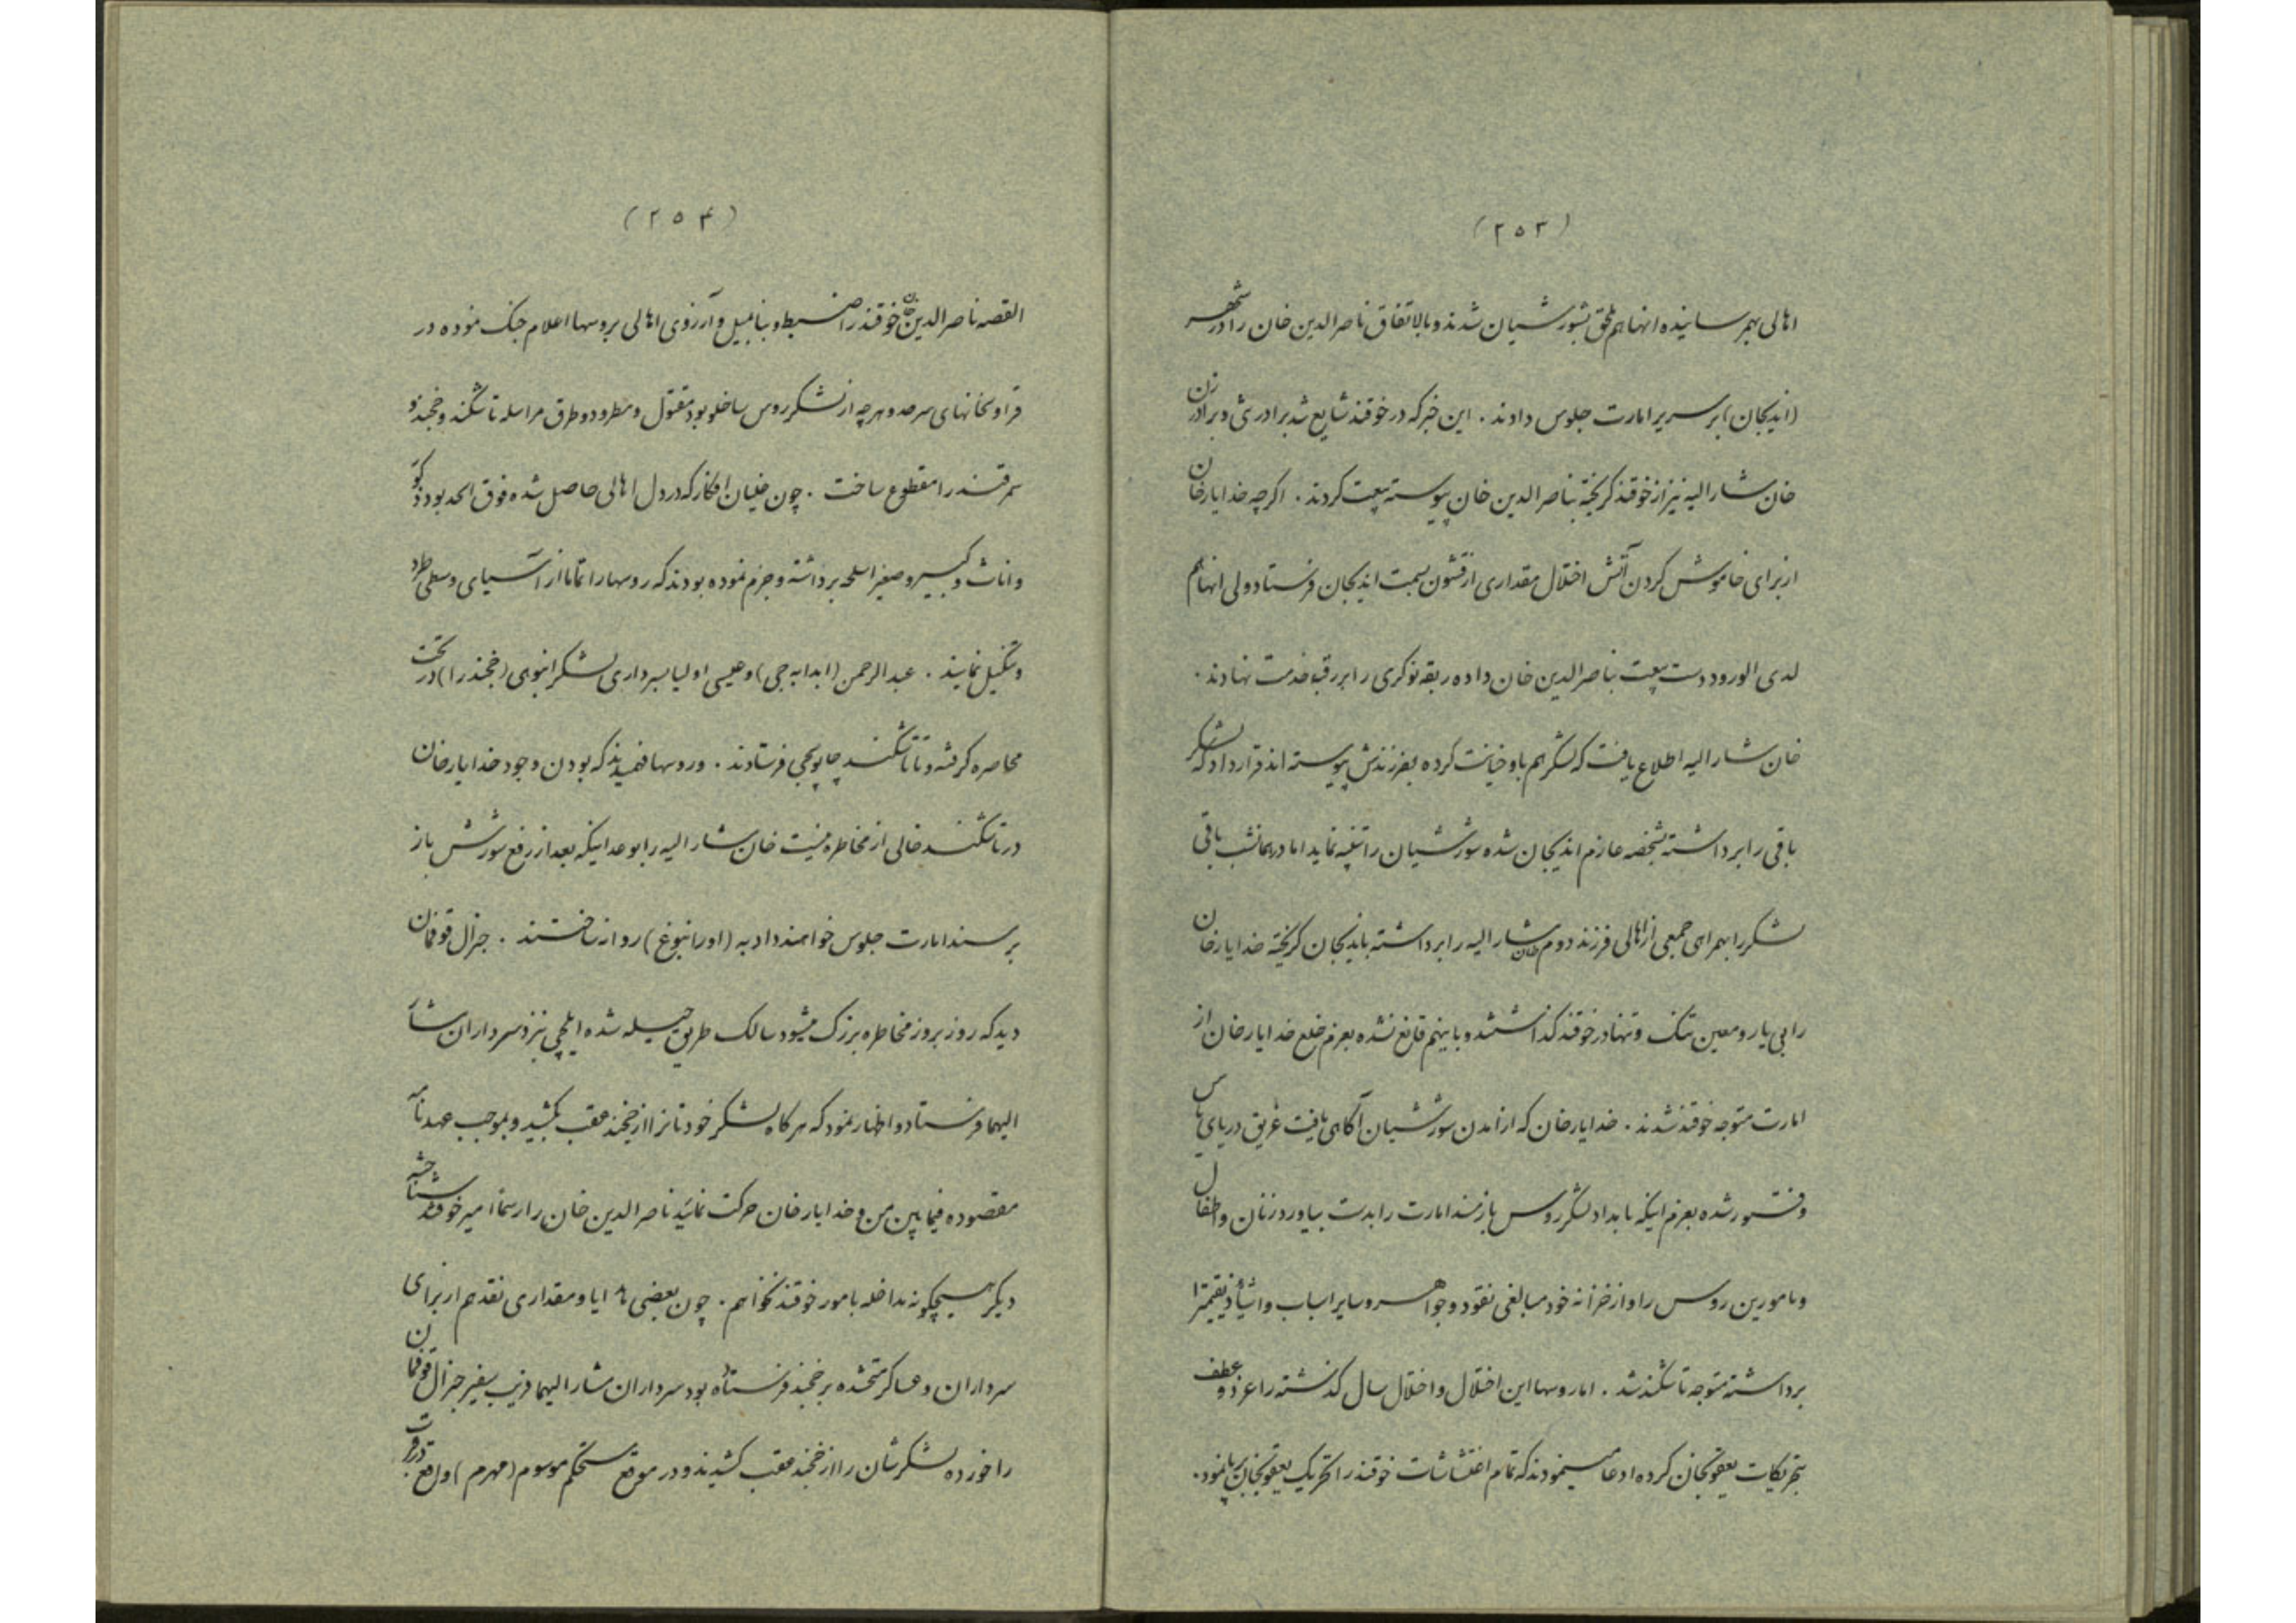 (۲۵۳)
اهالی بهم رسانیده انها هم ملحق بشورشیان شدند و بالاتفاق ناصرالدین خان را در شهر
(اندیجان) بر سریر امارت جلوس دادند . این خبر که در خوقند شایع شد برادرش و برادرزن
خان مشارالیه نیز از خوقند کریخته بناصرالدین خان پیوسته بیعت کردند . اکرچه خدایارخان
از برای خاموش کردن آتش اختلال مقداری از قشون بسمت اندیجان فرستاد ولی انها هم
لدی الورود دست بیعت بناصرالدین خان داده ربقه نوکری را بر رقبه خدمت نهادند .
خان مشارالیه اطلاع یافت که لشکر هم باو خیانت کرده بفرزندش پیوسته اند قرار داد که لشکر
باقی را برداشته بشخصه عازم اندیجان شده شورشیان را تنبیه نماید اما در همانشب باقی
لشکر را بهمراهی جمعی از اهالی فرزند دوم خان مشارالیه را برداشته باندیجان کریخته خدایارخان
را بی یار و معین تک و تنها در خوقند کذاشتند و باینهم قانع نشده بعزم خلع خدایارخان از
امارت متوجه خوقند شدند . خدایارخان که از امدن شورشیان آکاهی یافت غریق دریای یاس
و فتور شده بعزم اینکه بامداد لشکر روس باز مسند امارت را بدست بیاورد زنان و اطفال
و مامورین روس را و از خزانه خود مبالغی نقود و جواهر و سایر اسباب و اشیأ ذیقیمترا
برداشته متوجه تاشکند شد . اما روسها این اختلال و اختلال سال کذشته را عزو و عطف
بتحریکات یعقوبخان کرده ادعا مینمودند که تمام اغتشاشات خوقند را تحریک یعقوبخان برپا نمود.
(۲۵۴)
القصه ناصرالدین خان خوقند را ضبط و بنا بمیل و آرزوی اهالی بروسها اعلام جنک نموده در
قراولخانهای سرحد و هرچه از لشکر روس ساخلو بود مقتول و مطرود و طرق مراسله تاشکند و خجند و
سمرقند را مقطوع ساخت . چون غلیان افکار که در دل اهالی حاصل شده فوق الحد بود ذکور
و اناث و کبیر و صغیر اسلحه برداشته و جزم نموده بودند که روسها را تماما از آسیای وسطی طرد
و تنکیل نمایند . عبدالرحمن (ابدابه جی) و عیسی اولیا بسرداری لشکر انبوهی (خجند را) در تحت
محاصره کرفته و تا تاشکند چاپوچی فرستادند . و روسها فهمیدند که بودن وجود خدایارخان
در تاشکند خالی از مخاطره نیست خان مشارالیه را بوعد اینکه بعد از رفع شورش باز
بر مسند امارت جلوس خواهند داد به (اورانبورغ) روانه ساختند . جنرال قوفمان
دید که روز بروز مخاطره بزرک میشود سالک طریق حیله شده ایلچی بنزد سرداران مشار
الیهما فرستاد و اظهار نمود که هرکاه لشکر خودتانرا از خجند عقب بکشید و بموجب عهدنامه
مقصوده فیما بین من و خدایارخان حرکت نمائید ناصرالدین خان را رسما امیر خوقند شناخته
دیکر هیچکونه مداخله بامور خوقند نخواهم . چون بعضی هدایا و مقداری نقد هم از برای
سرداران و عساکر متحشده بر خجند فرستاده بود سرداران مشارالیهما فریب سفیر جنرال قوفمان
را خورده لشکرشان را از خجند عقب کشیدند و در موقع مستحکم موسوم (مهرم) واقع در قرب